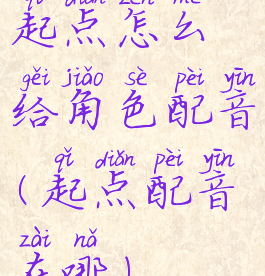 qǐ diǎn zěn me
起点怎么
gěi jiǎo sè pèi yīn
给角色配音
qǐ diǎn pèi yīn
(起点配音
zài nǎ
在哪)